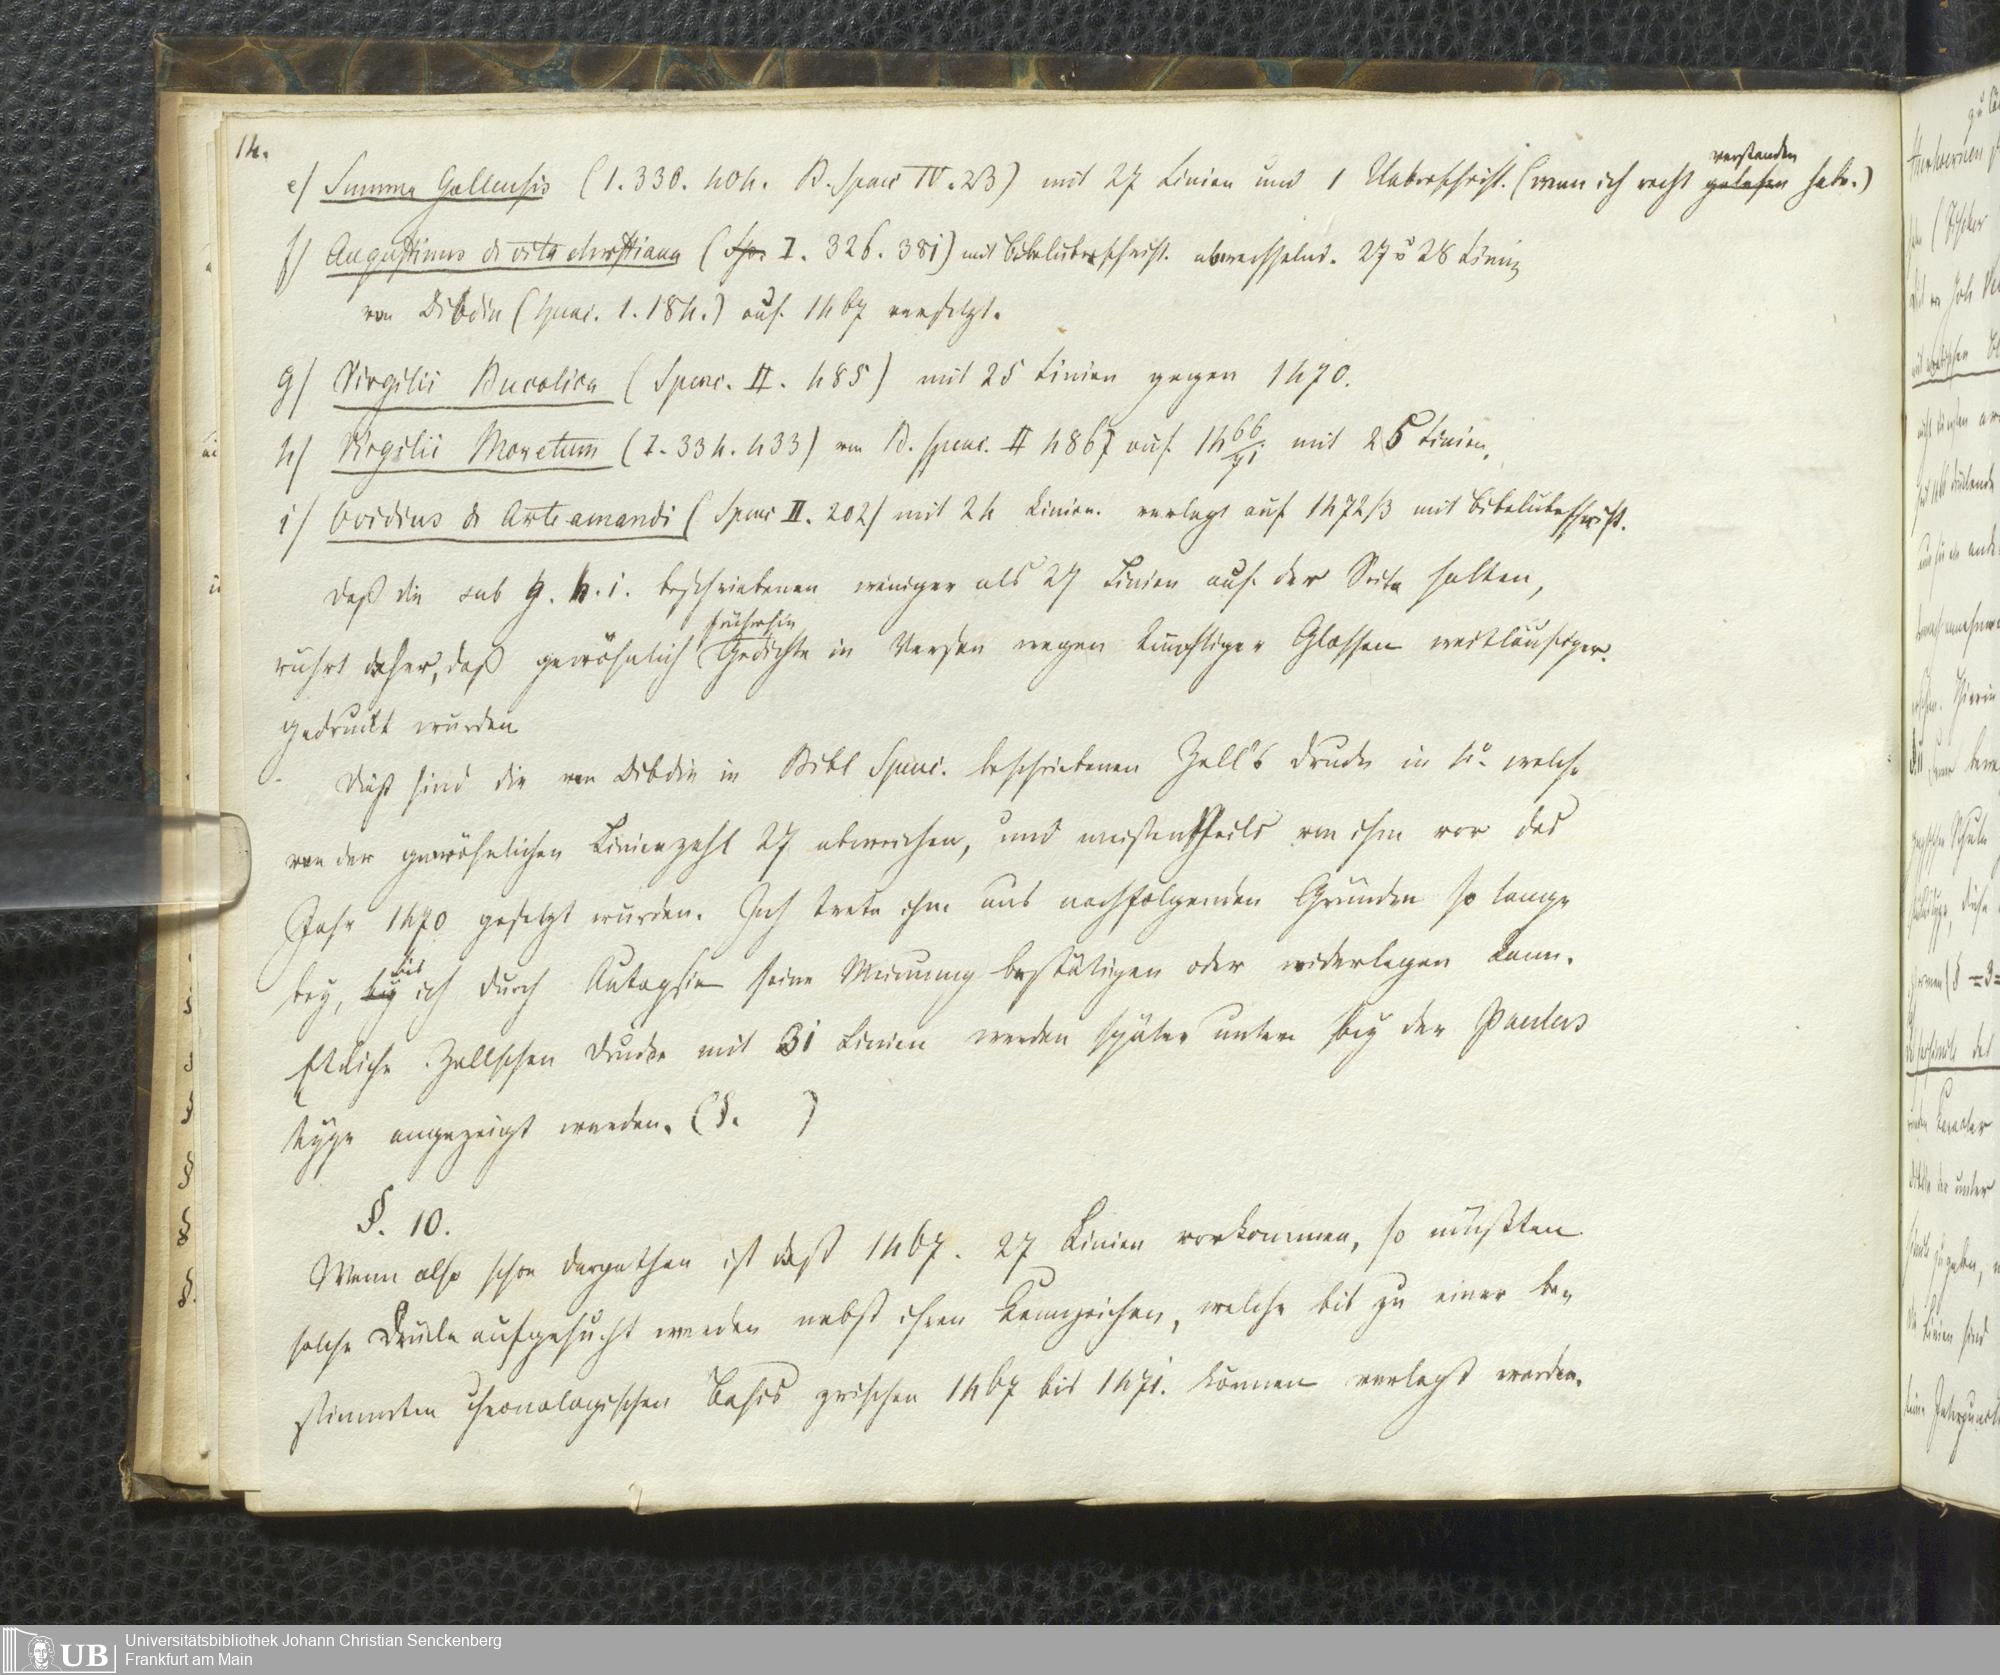 14.
e) Summa Gallensis (1. 330. 404. B. Spenc IV. 23) mit 27 Linien und 1 Ueberschrift. (wenn ich recht verstanden gelesen habe.)
f) Augustinus de vita christiana (Sp. I. 326. 381) mit Bibelüberschrift. abwechselnd. 27 u 28 Linien
von Dibdin (Spenc. 1. 184.) auf. 1467 versetzt.
g) Virgilii Bucolica (Spenc. II. 485) mit 25 Linien gegen 1470.
h) Virgilii Moretum (I. 334. 433) von B. Spenc. II 486 auf. 1466/71 mit 25 Linien.
i) Ovidius de Arte amandi (Spenc II. 202) mit 24 Linien. verlegt auf 1472/3 mit Bibelüberschrift.
daß die sub g. h. i. beschriebenen weniger als 27 Linien auf der Seite halten,
rührt daher, daß gewöhnlich frühehin Gedichte in Versen wegen künftiger Glossen weitläufiger
gedruckt wurden
Dieß sind die von Dibdin in Bibl Spenc. beschriebenen Zell's Drucke in 4o welche
von der gewöhnlichen Linienzahl 27 abweichen, und meistentheils von ihm vor das
Jahr 1470 gesetzt wurden. Ich trete ihm aus nachfolgenden Gründen so lange
bey, bis ich durch Autopsie seine Meinung bestätigen oder widerlegen kann.
Etliche Zellschen Drucke mit 31 Linien werden später unten bey der Paulus
type angezeigt werden. (§. )
§. 10.
Wenn also schon dargethan ist daß 1467. 27 Linien vorkommen, so müßten
solche Drucke aufgesucht werden nebst ihren Kennzeichen, welche bis zu einer be-
stimmten chronologischen Basis zwischen 1467 bis 1471. können verlegt werden.
Universitätsbibliothek Johann Christian Senckenberg
Frankfurt am Main
UB